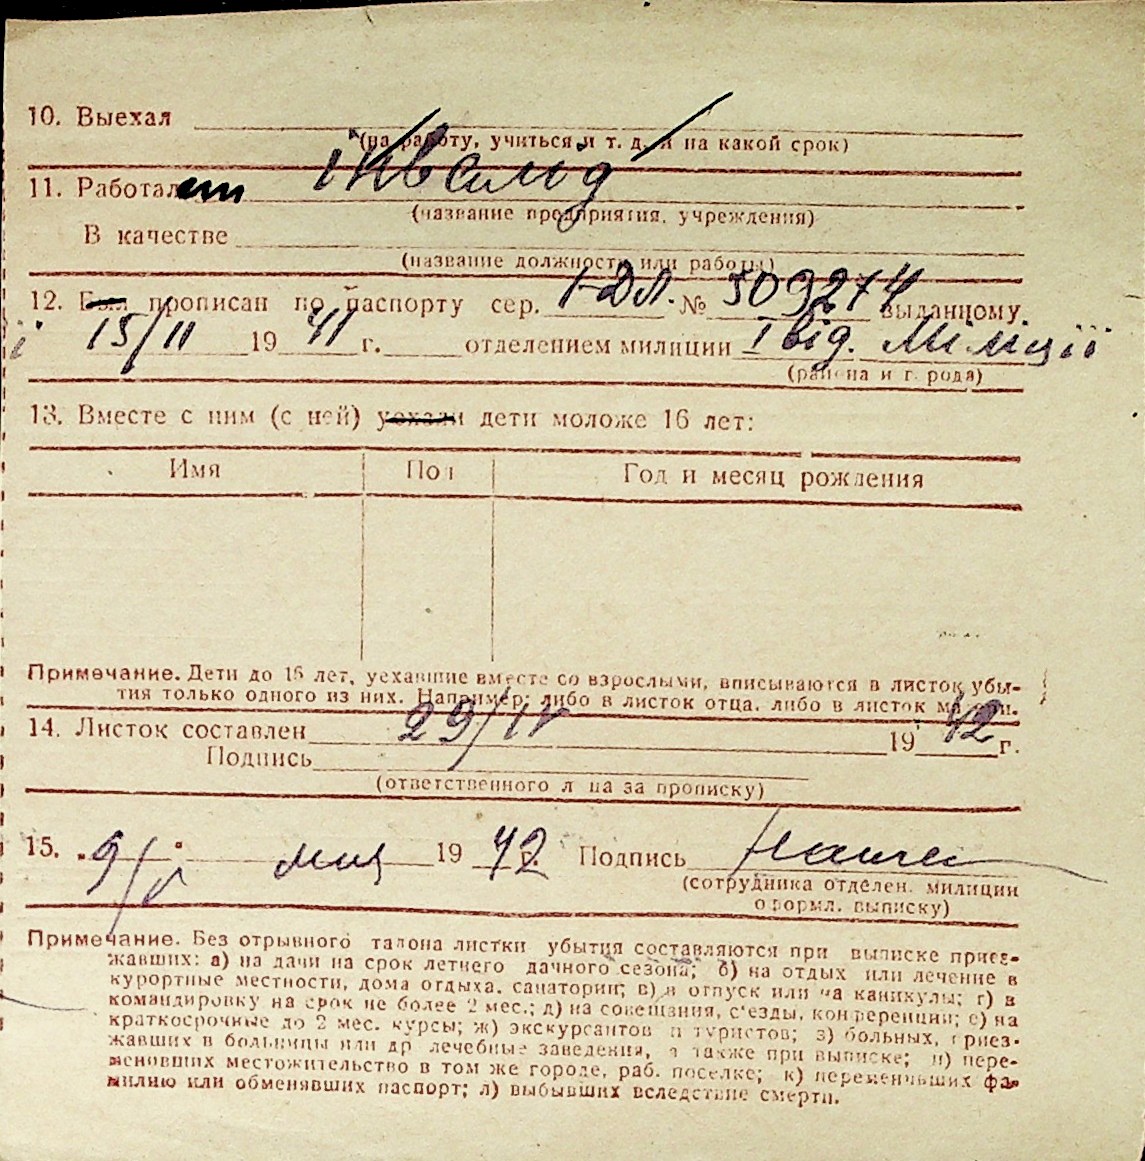 10. Выехал
(на работу, учиться и т. д. и на какой срок)
інвалід
11. Работает
(название предприятия, учреждения)
В качестве
(название должности или работы)
12. Был прописан по паспорту сер. I-ДЛ. № 509274 выданному
15/II 1941 г. отделением милиции I від. Міліції
(района и города)
13. Вместе с ним (с ней) уехали дети моложе 16 лет:
Имя Пол Год и месяц рождения
Примечание. Дети до 16 лет, уехавшие вместе со взрослыми, вписываются в листок убы-
тия только одного из них. Например: либо в листок отца, либо в листок матери.
14. Листок составлен 29/IV 1942 г.
Подпись
(ответственного лица за прописку)
15. „9/V“ 1942 Подпись
(сотрудника отделен. милиции
оформл. выписку)
Примечание. Без отрывного талона листки убытия составляются при выписке приез-
жавших: а) на дачи на срок летнего дачного сезона; б) на отдых или лечение в
курортные местности, дома отдыха, санатории; в) в отпуск или на каникулы; г) в
командировку на срок не более 2 мес.; д) на совещания, с'езды, конференции; е) на
краткосрочные до 2 мес. курсы; ж) экскурсантов и туристов; з) больных, приез-
жавших в больницы или др лечебные заведения, а также при выписке; и) пере-
менивших местожительство в том же городе, раб. поселке; к) переменивших фа-
милию или обменявших паспорт; л) выбывших вследствие смерти.